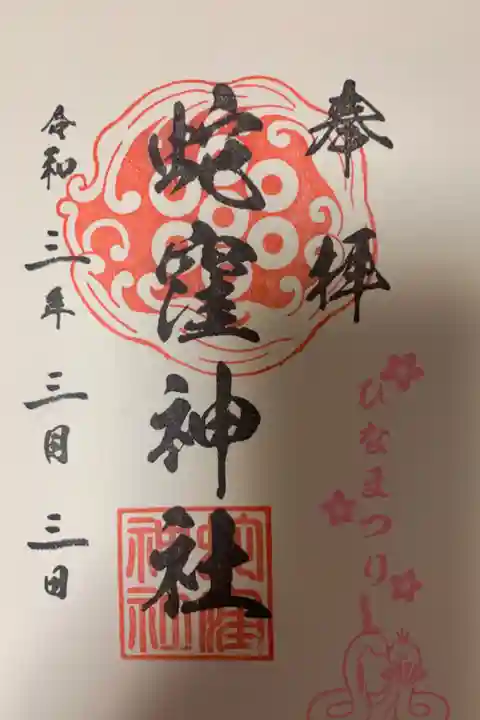 奉拝
ひなまつり
蛇窪神社
令和三年三月三日
蛇窪神社